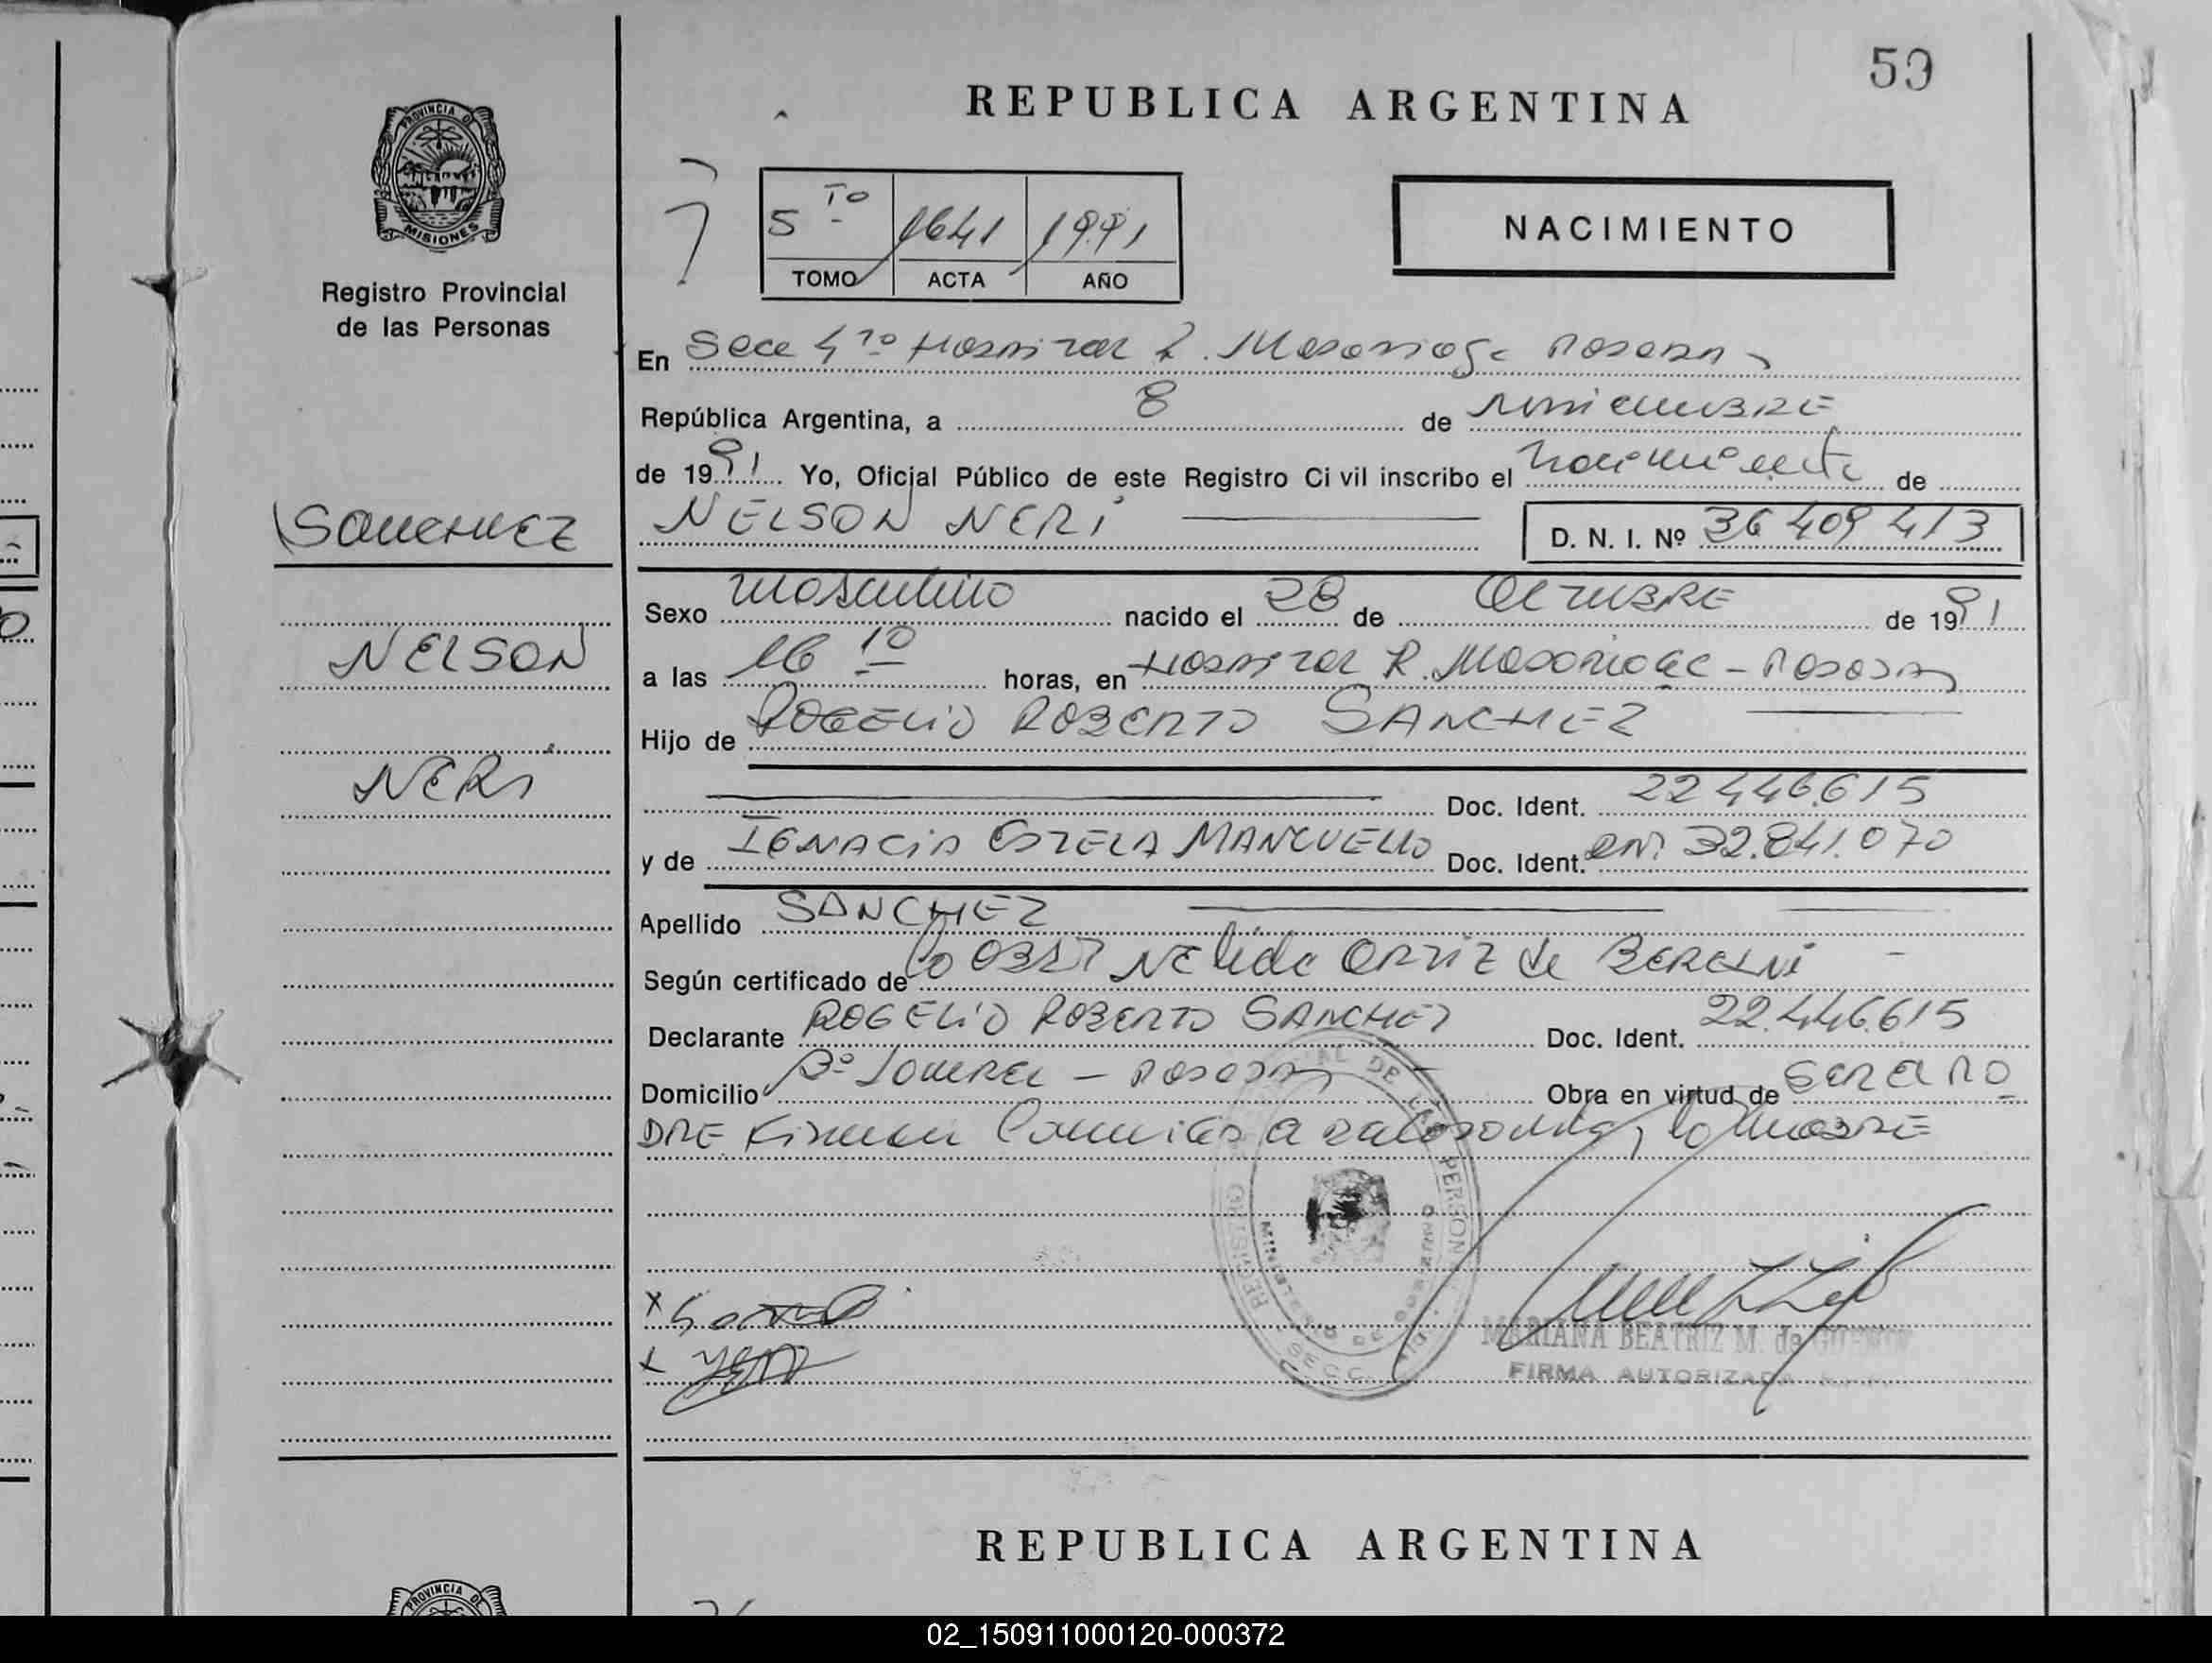 59
REPUBLICA ARGENTINA
PROVINCIA DE
MISIONES
Registro Provincial
de las Personas
5 to 1641 1991
TOMO ACTA AÑO
NACIMIENTO
En Secc 4ta Hospital R. Madariaga Posadas
República Argentina, a 8 de noviembre
de 1991 Yo, Oficial Público de este Registro Ci vil inscribo el nacimiento de
NELSON NERI D. N. I. Nº 36 409 413
SANCHEZ
NELSON
NERI
Sexo masculino nacido el 28 de OCTUBRE de 1991
a las 16 10 horas, en Hospital R. Madariaga - Posadas
Hijo de ROGELIO ROBERTO SANCHEZ
Doc. Ident. 22.446.615
y de IGNACIA ESTELA MANCUELLO Doc. Ident. 32.841.070
Apellido SANCHEZ
Según certificado de la Nelida ORTIZ de
Declarante ROGELIO ROBERTO SANCHEZ Doc. Ident. 22.446.615
Domicilio Bº - Posadas Obra en virtud de ser el PA
DRE Firman la MADRE
x
x
REGISTRO DE LAS PERSONAS
MINISTERIO DE GOBIERNO
SECC.
MARIANA BEATRIZ M. de
FIRMA AUTORIZADA
REPUBLICA ARGENTINA
PROVINCIA DE
02_150911000120-000372